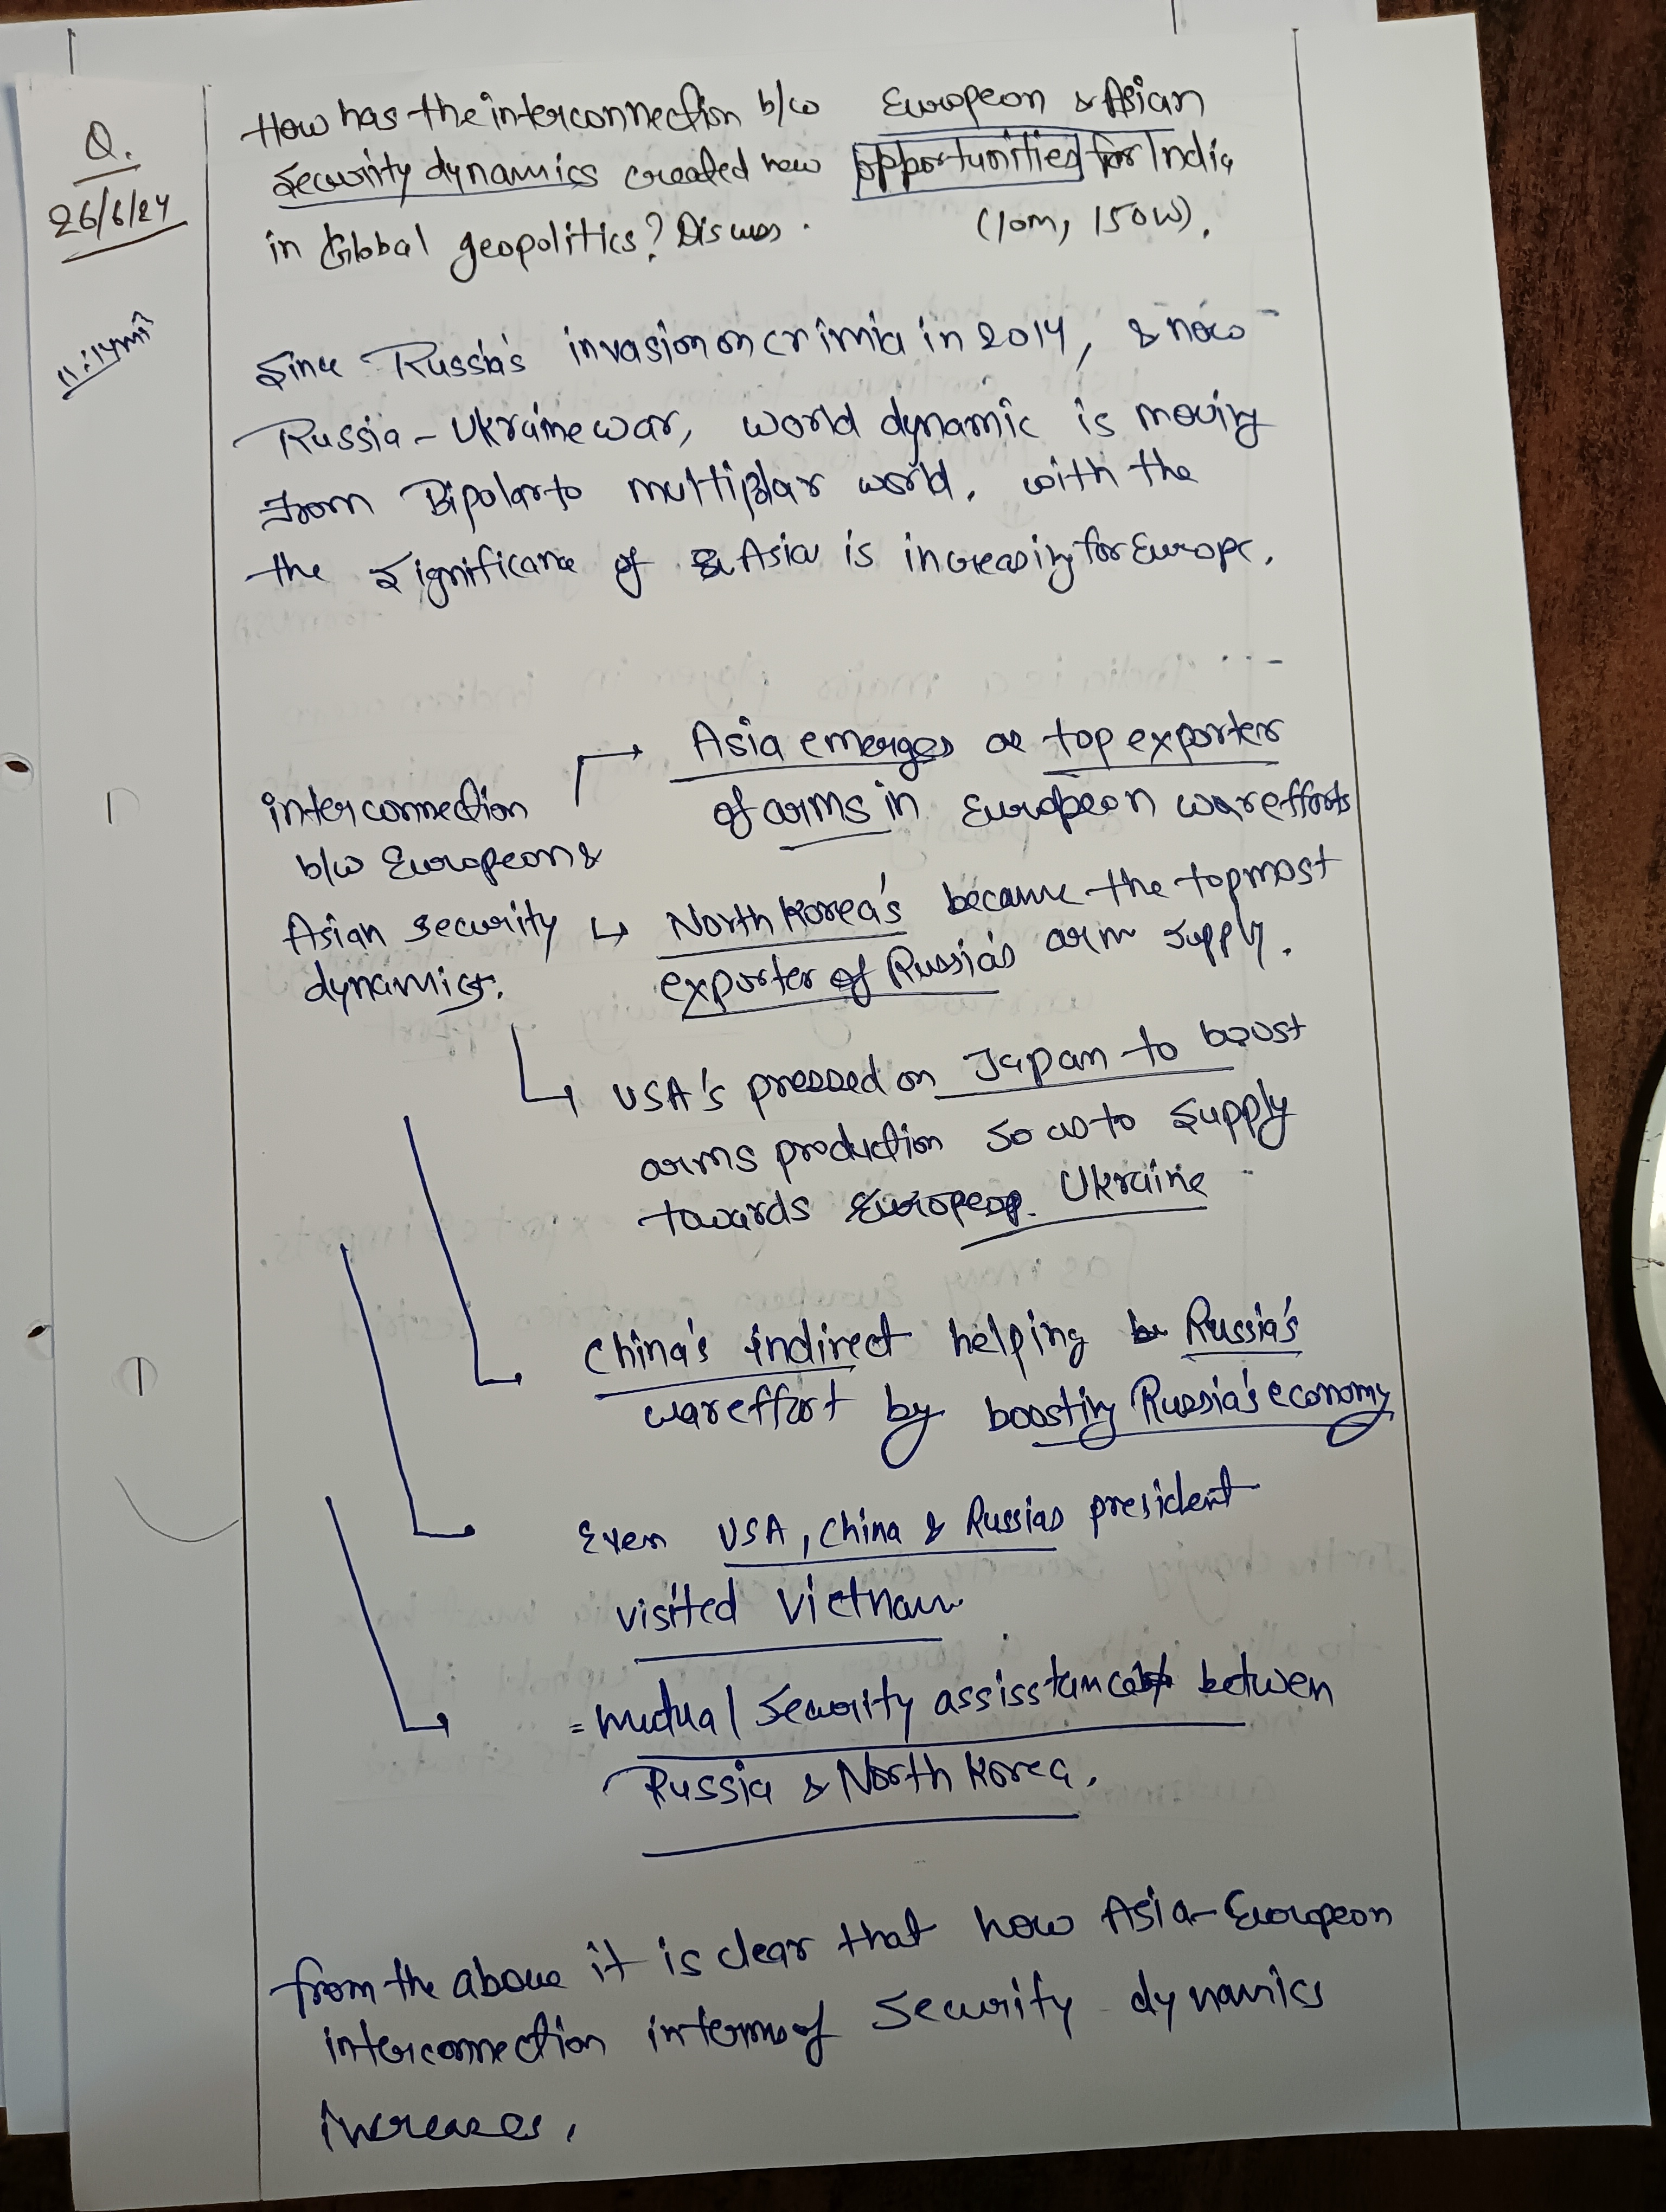 Q.
26/6/24
11:14 mi
How has the interconnection b/w European & Asian
security dynamics created new opportunities for India
in Global geopolitics? Discuss. (10m, 150w).
Since Russia's invasion on crimia in 2014, & now
Russia - Ukraine war, world dynamic is moving
from Bipolar to multipolar world, with the
the significance of Asia is increasing for Europe.
interconnection
b/w European &
Asian security
dynamics.
Asia emerges as top exporter
of arms in European war efforts
North Korea's became the topmost
exporter of Russia's arm supply.
USA's pressed on Japan to boost
arms production so as to supply
towards Europesp. Ukraine
China's indirect helping Russia's
war effort by boosting Russia's economy
Even USA, China & Russias president
visited Vietnam
= mutual security assisstance betwen
Russia & North Korea.
from the above it is clear that how Asia-European
interconnection interms of security dynamics
increases.